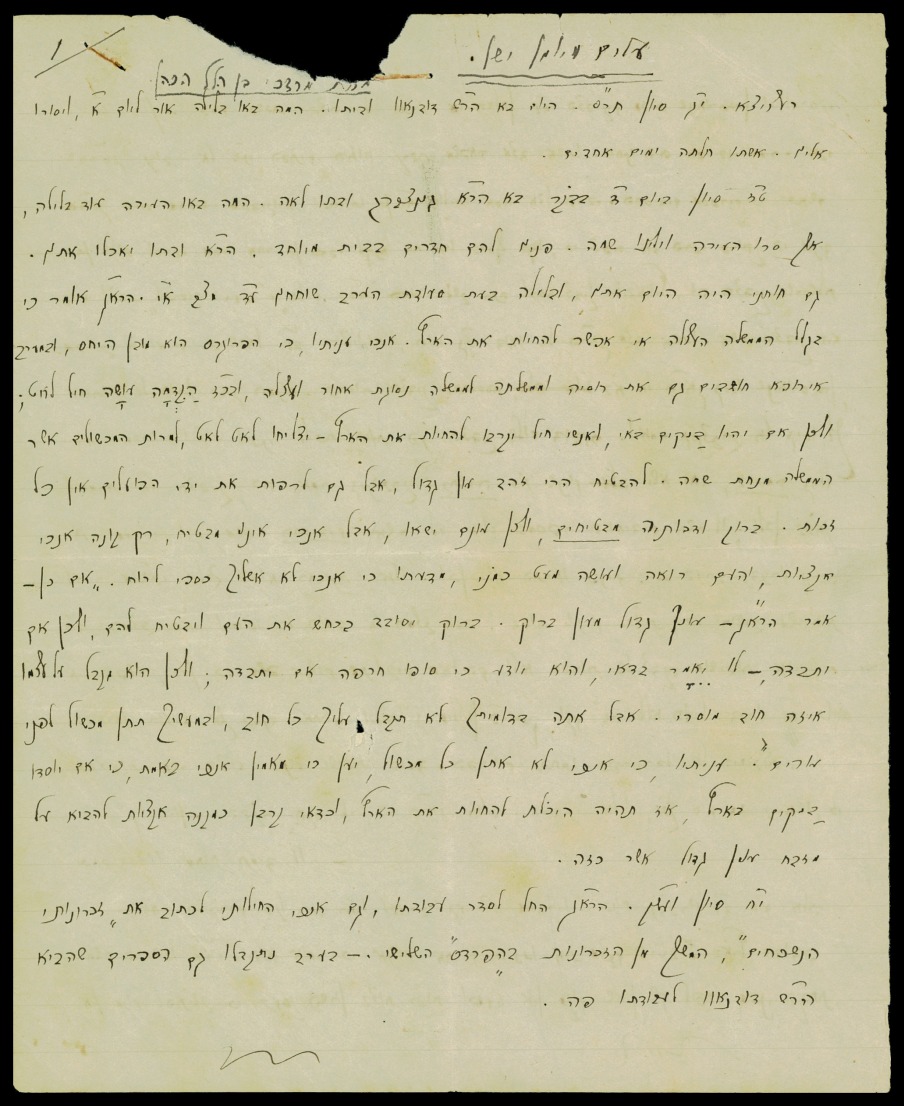 1
עלים מיומן ישן.
מאת מרדכי בן הלל הכהן
רעזיצא. י״ג סיון תר״ס. היום בא הר״ש דובנאוו וביתו. המה באו בלילה אור ליום א׳, ויסורו
אלי. אשתו חלתה ימים אחדים.
ט״ז סיון ביום ד׳ בבקר בא הר״א גינצבורג ובתו לאה. המה באו העירה עוד בלילה,
אך סרו העירה וילינו שמה. פנינו להם חדרים בבית מיוחד. הר״א ובתו יאכלו אתנו.
גם חותני היה היום אתנו, ובלילה בעת סעודת הערב שוחחנו על מצב א״י. אומר כי
בגלל הממשלה העצלה אי אפשר להחיות את הארץ. אנכי עניתיו, כי הפרוגרס הוא מובן היחס, ובמערב
אירופא חושבים גם את רוסיה וממשלתה לממשלה נסוגת אחור ועצלה, ובכ״ז הנדמה עושה חיל לאט;
ולכן אם יהיו בנקים בא״י, ואנשי חיל יקרבו להחיות את הארץ – יצליחו לאט לאט, למרות המכשולים אשר
הממשלה מנחת שמה. להבטיח הרי זהב עון גדול, אבל גם לרפות את ידי הפועלים אין כל
זכות. ברוק וחבורתיה מבטיחים, ולכן עונם ישאו, אבל אנכי אינני מבטיח, רק קונה אנכי
אקציות, והעם רואה ועושה מעט כמוני, מדעתו כי אנכי לא אשליך כספי לרוח. „אם כן –
אמר – עונך גדול מעון ברוק. ברוק יסובב בכחש את העם ויבטיח להם, ולכן אם
יתבדה, – לו יאמר בדאי, והוא יודע כי סופו חרפה אם יתבדה; ולכן הוא מקבל על עצמו
איזה חוב מוסרי. אבל אתה בדומיתך לא תקבל עליך כל חוב, ובמעשיך תתן מכשול לפני
עניתיו, כי אנכי לא אתן כל מכשול, יען כי מאמין אנכי באמת, כי אם יוסדו
בנקים בארץ, אז תהיה היכולת להחיות את הארץ, וכדאי קרבן כמקנה אקציות להביא על
מזבח ענין גדול אשר כזה.
י״ח סיון החל לסדר עבודתו, וגם אנכי החילותי לכתוב את „זכרונותי
הנשכחים", המשך מן הזכרונות „בהפרדס" השלישי. – בערב נתקבלו גם הספרים שהביא
הר״ש דובנאוו לעבודתו פה.